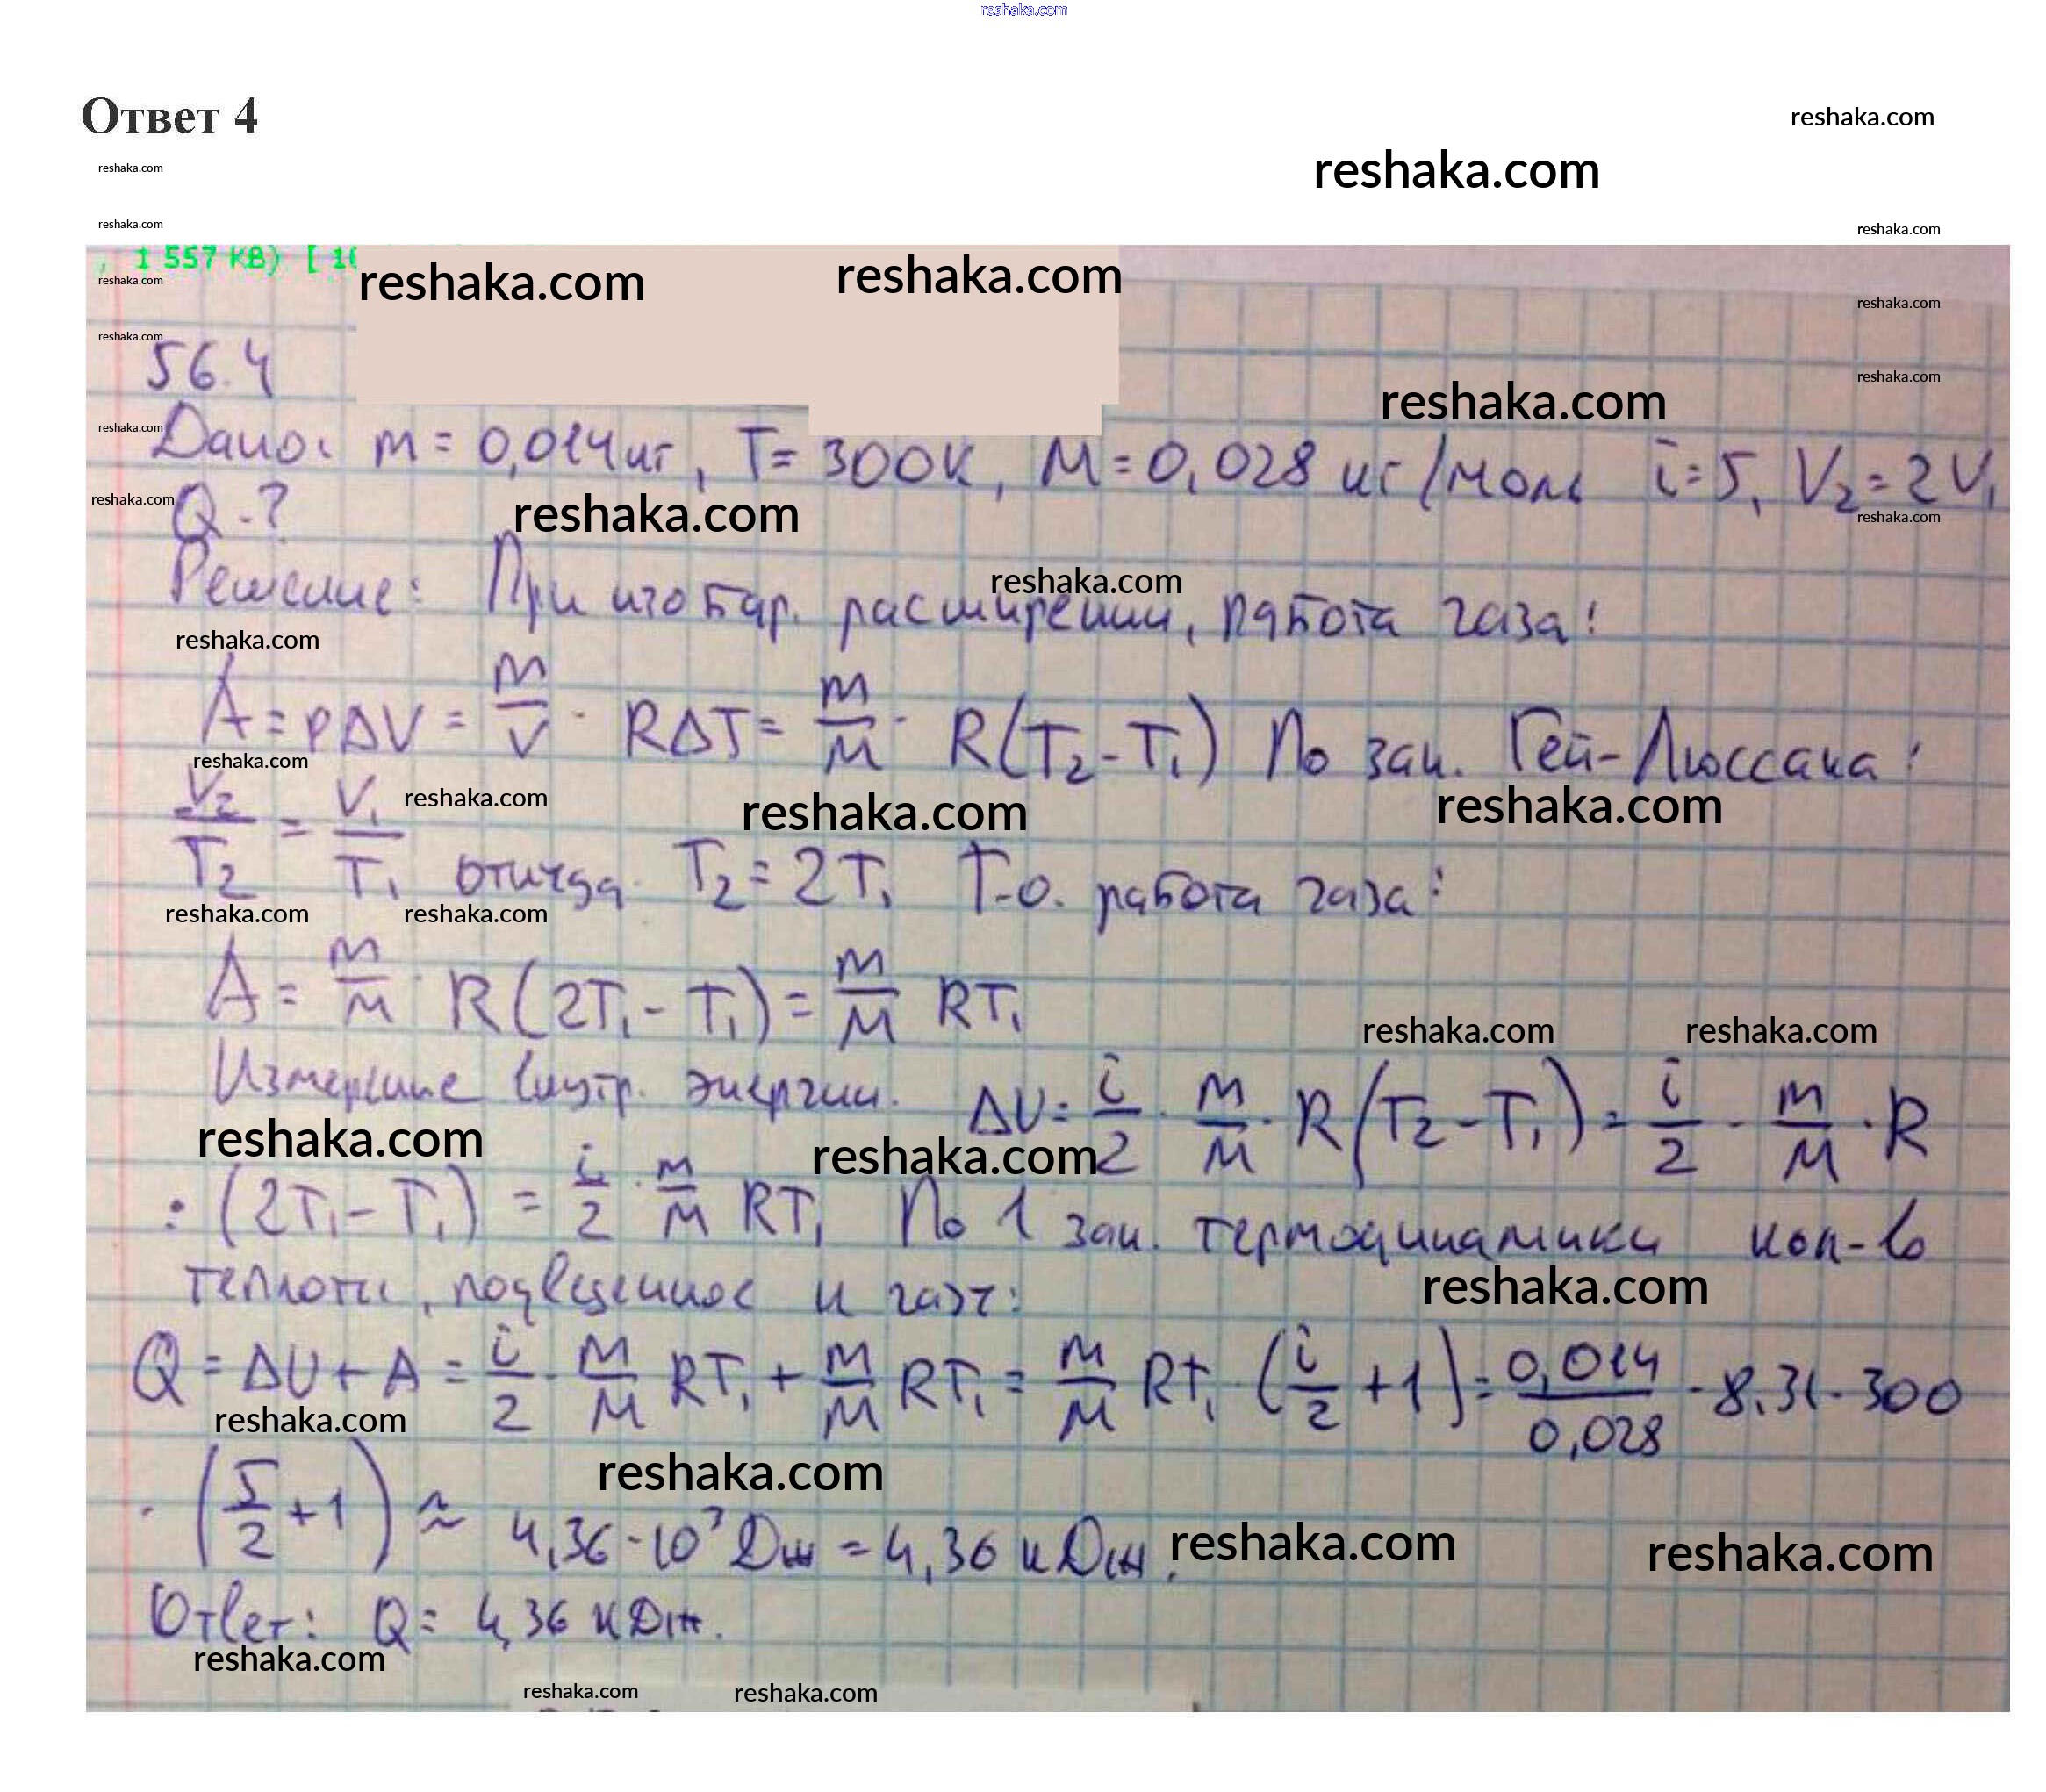 reshaka.com
Ответ 4
reshaka.com
reshaka.com
reshaka.com
reshaka.com
reshaka.com
, 1 557 KB) [ 1
reshaka.com
reshaka.com
reshaka.com
reshaka.com
reshaka.com
56.4
reshaka.com
reshaka.com
Дано: m = 0,014 кг, T = 300K, M = 0,028 кг/моль i = 5, V₂ = 2V₁
reshaka.com
reshaka.com
Q - ?
reshaka.com
reshaka.com
Решение: При изобар. расширении, работа газа:
reshaka.com
reshaka.com
A = pΔV = m/V · RΔT = m/M · R(T₂ - T₁) По зак. Гей-Люссака:
reshaka.com
V₂/T₂ = V₁/T₁ откуда T₂ = 2T₁ Т.о. работа газа:
reshaka.com
reshaka.com
reshaka.com
reshaka.com
reshaka.com
A = m/M · R(2T₁ - T₁) = m/M RT₁
reshaka.com
reshaka.com
Измерение внутр. энергии. ΔU = i/2 · m/M · R(T₂ - T₁) = i/2 · m/M · R
reshaka.com
reshaka.com
· (2T₁ - T₁) = i/2 · m/M RT₁ По 1 зак. термодинамики кол-во
теплоты, подведенное к газу:
reshaka.com
Q = ΔU + A = i/2 · m/M RT₁ + m/M RT₁ = m/M RT₁ · (i/2 + 1) = 0,014/0,028 · 8,31 · 300
reshaka.com
· (5/2 + 1) ≈ 4,36 · 10³ Дж = 4,36 кДж.
reshaka.com
reshaka.com
reshaka.com
Ответ: Q = 4,36 кДж.
reshaka.com
reshaka.com
reshaka.com